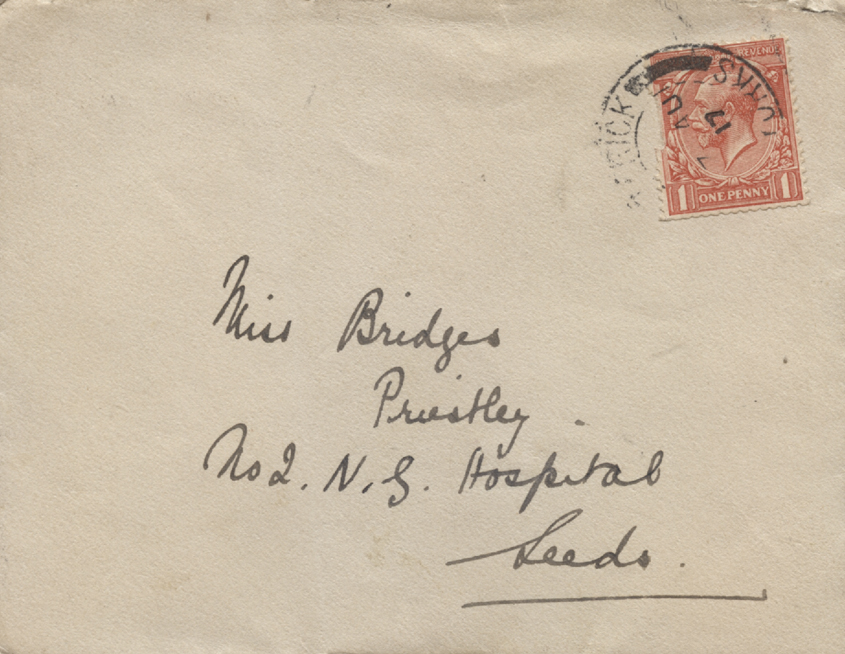 REVENUE
AU
17
1 ONE PENNY 1
Miss Bridges
Priestley.
No 2. N. G. Hospital
Leeds.